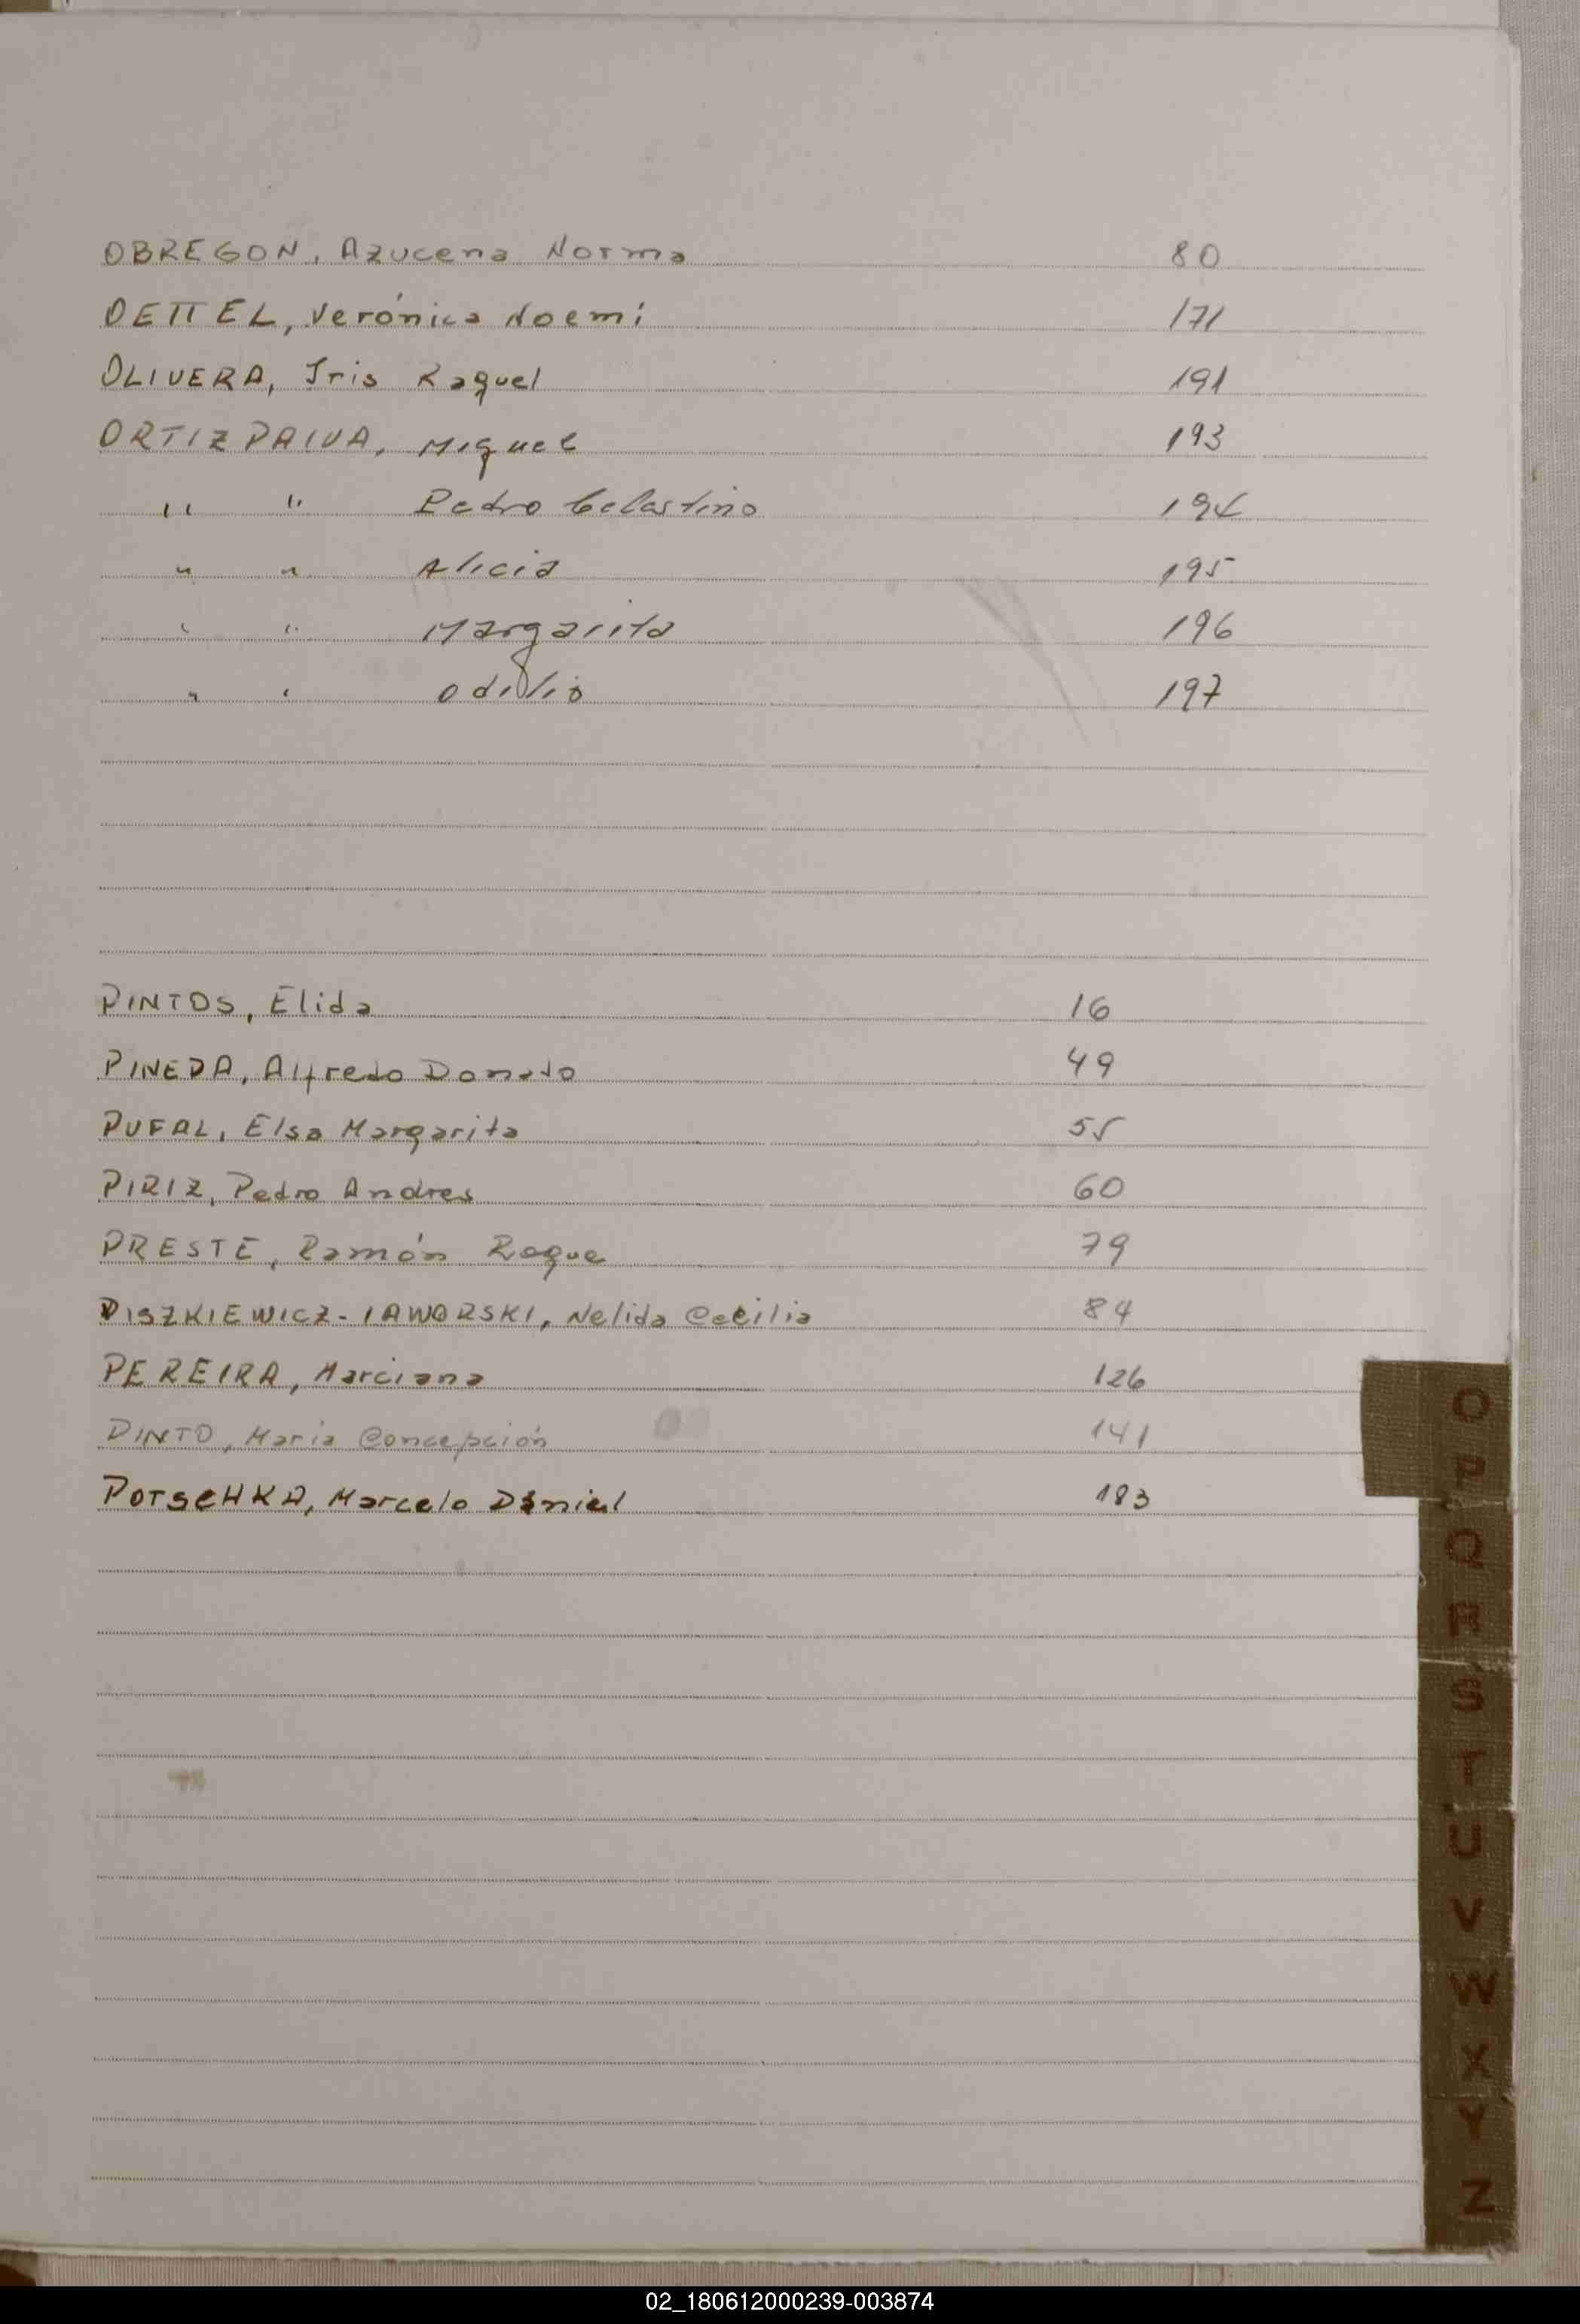 OBREGON, Azucena Norma 80
OETTEL, Verónica Noemi 171
OLIVERA, Iris Raquel 191
ORTIZ PAIVA, Miguel 193
" " Pedro Celestino 194
" " Alicia 195
" " Margarita 196
" " Odilio 197
PINTOS, Elida 16
PINEDA, Alfredo Donato 49
PUFAL, Elsa Margarita 55
PIRIZ, Pedro Andres 60
PRESTE, Ramón Roque 79
PISZKIEWICZ-IAWORSKI, Nelida Cecilia 84
PEREIRA, Marciana 126
PINTO, Maria Concepción 141
POTSCHKA, Marcelo Daniel 183
O
P
Q
R
S
T
U
V
W
X
Y
Z
02_180612000239-003874